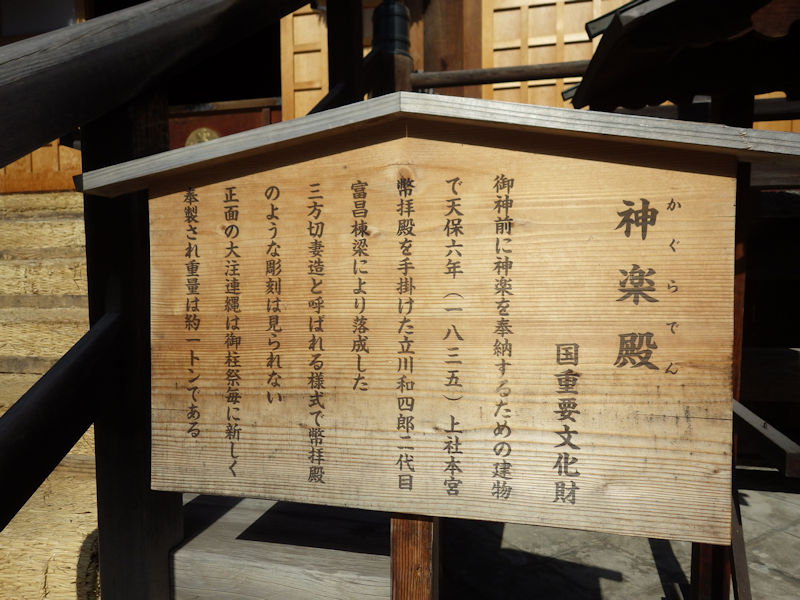 神楽殿
かぐらでん
国重要文化財
御神前に神楽を奉納するための建物
で天保六年（一八三五）上社本宮
幣拝殿を手掛けた立川和四郎二代目
富昌棟梁により落成した
三方切妻造と呼ばれる様式で幣拝殿
のような彫刻は見られない
正面の大注連縄は御柱祭毎に新しく
奉製され重量は約一トンである